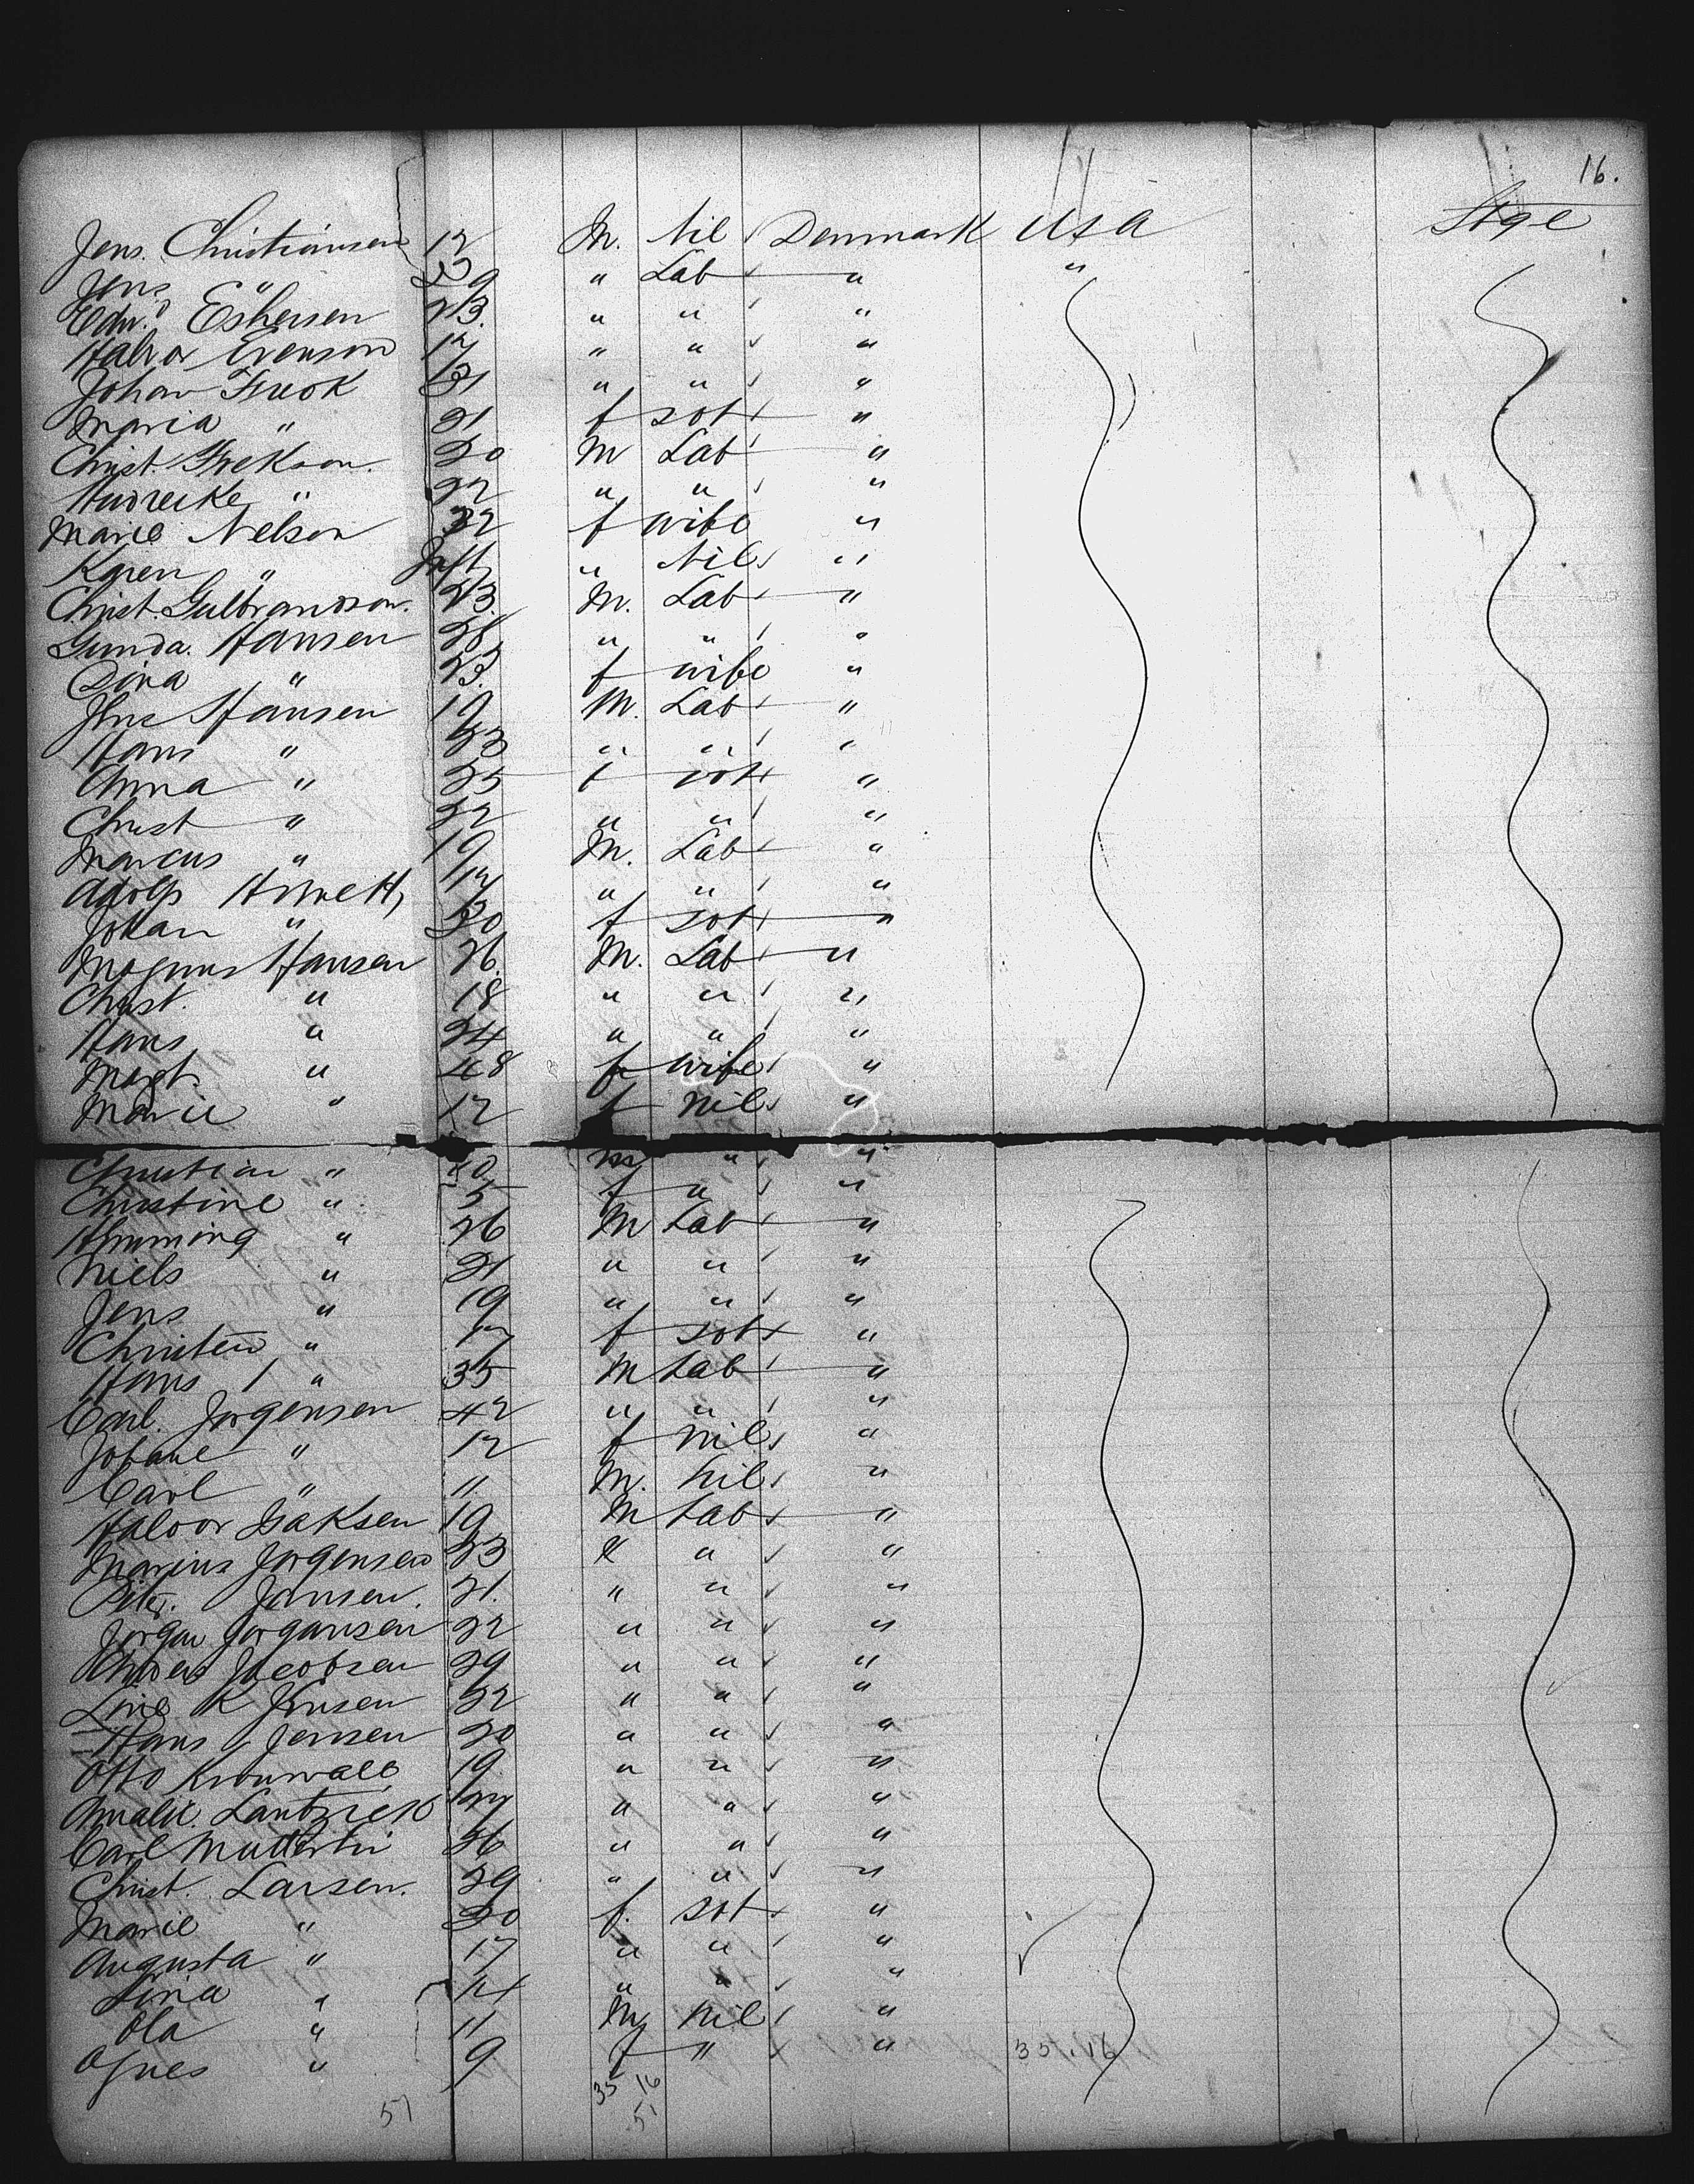 16.
Jens. Christiansen 12 M. Nil Denmark USA Stge
Jens " 29 " Lab " "
Edw. Eshersen 23. " " "
Halvor Evenson 17 " " "
Johan 31 " " "
Maria " 21 f sot "
Christ. 20 M Lab "
" 22 " " "
Marie Nelson 32 f wife "
Karen " Inft " Nil "
Christ. Gulbrandson. 23. M. Lab "
Gunda. Hansen 28 " " "
Dina " 23. f wife "
Jens Hansen 19 M. Lab "
Hans " 23 " " "
Anna " 25 f sot "
Christ " 22 " " "
Marcus " 19 M. Lab "
Adolf 17 " " "
Johan " 20 f sot "
Magnus Hansen 26. M. Lab "
Christ. " 18 " " "
Hans " 24 " " "
Magt. " 48 f wife "
Marie " 12 f nil "
Christian " 10 M " "
Christine " 5 f " "
Hemming " 26 M Lab "
Niels " 21 " " "
Jens " 19 " " "
Christen " 17 f sot "
Hans " 35 M Lab "
Carl. Jorgensen 42 " " "
Johane " 12 f nil "
Carl " 11. M. nil "
Halvor Isaksen 19 M Lab "
Marius Jorgensen 23 " " "
Peter. Jansen. 21. " " "
Jorgen Jorgansen 22 " " "
Anders Jacobsen 29 " " "
Line K Jensen 22 " " "
Hans Jensen 20 " " "
Otto Kronwall 19. " " "
Amalie. 27 " " "
Carl 26 " " "
Christ. Larsen. 29 " " "
Marie " 20 f. sot "
Augusta " 17 " " "
Lina " 14 " " "
Ola " 11 M nil "
Agnes " 9 f " " 35.16
35 16
51 51